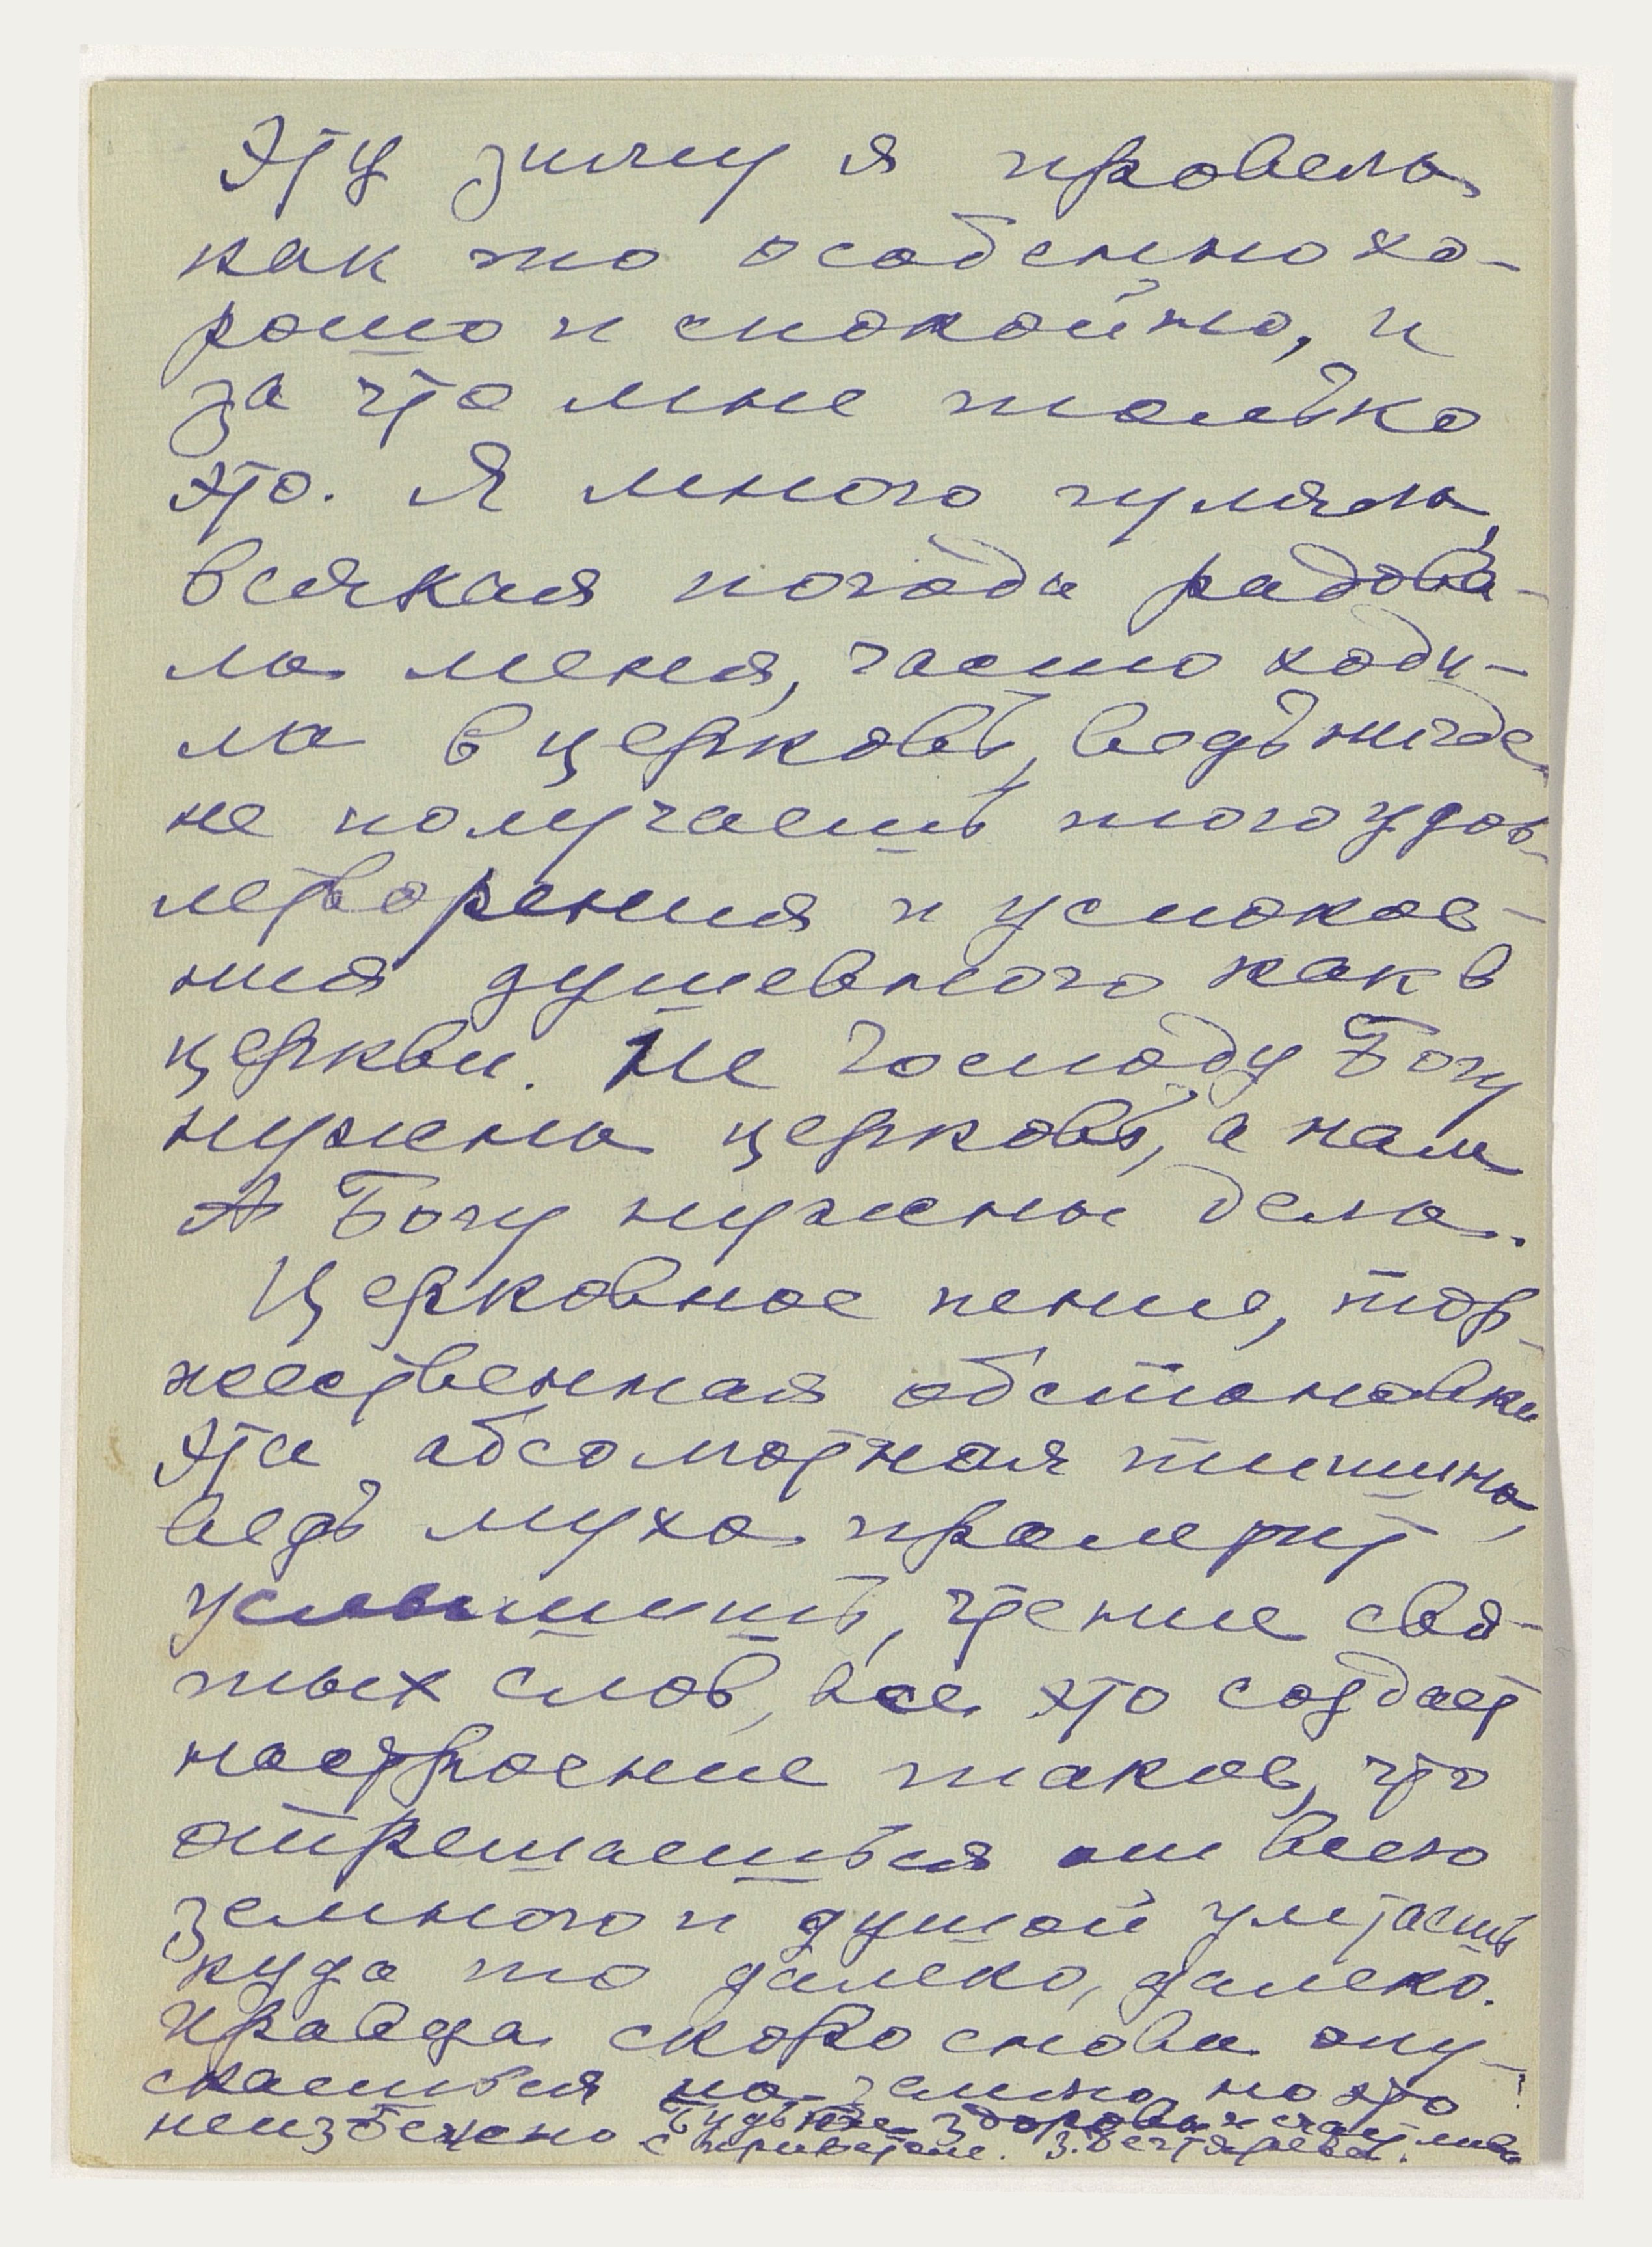 Эту зиму я провела
как то особенно хо-
рошо и спокойно, и
за что мне только
это. Я много гуляла,
всякая погода радова-
ла меня, часто ходи-
ла в церковь, ведь нигде
не получаешь того удов-
летворения и успокое-
ния душевного как в
церкви. Не Господу Богу
нужна церковь, а нам
А Богу нужны дела.
Церковное пение, тор-
жественная обстановка
эта абсолютная тишина,
ведь муха пролетит
услышишь, чтение свя-
тых слов, все это создает
настроение такое, что
отрешаешься от всего
земного и душой улетаешь
куда то далеко, далеко.
Правда скоро снова опу-
скаешься на землю, но это
неизбежно Будьте здоровы и счастливы
с приветом. З.